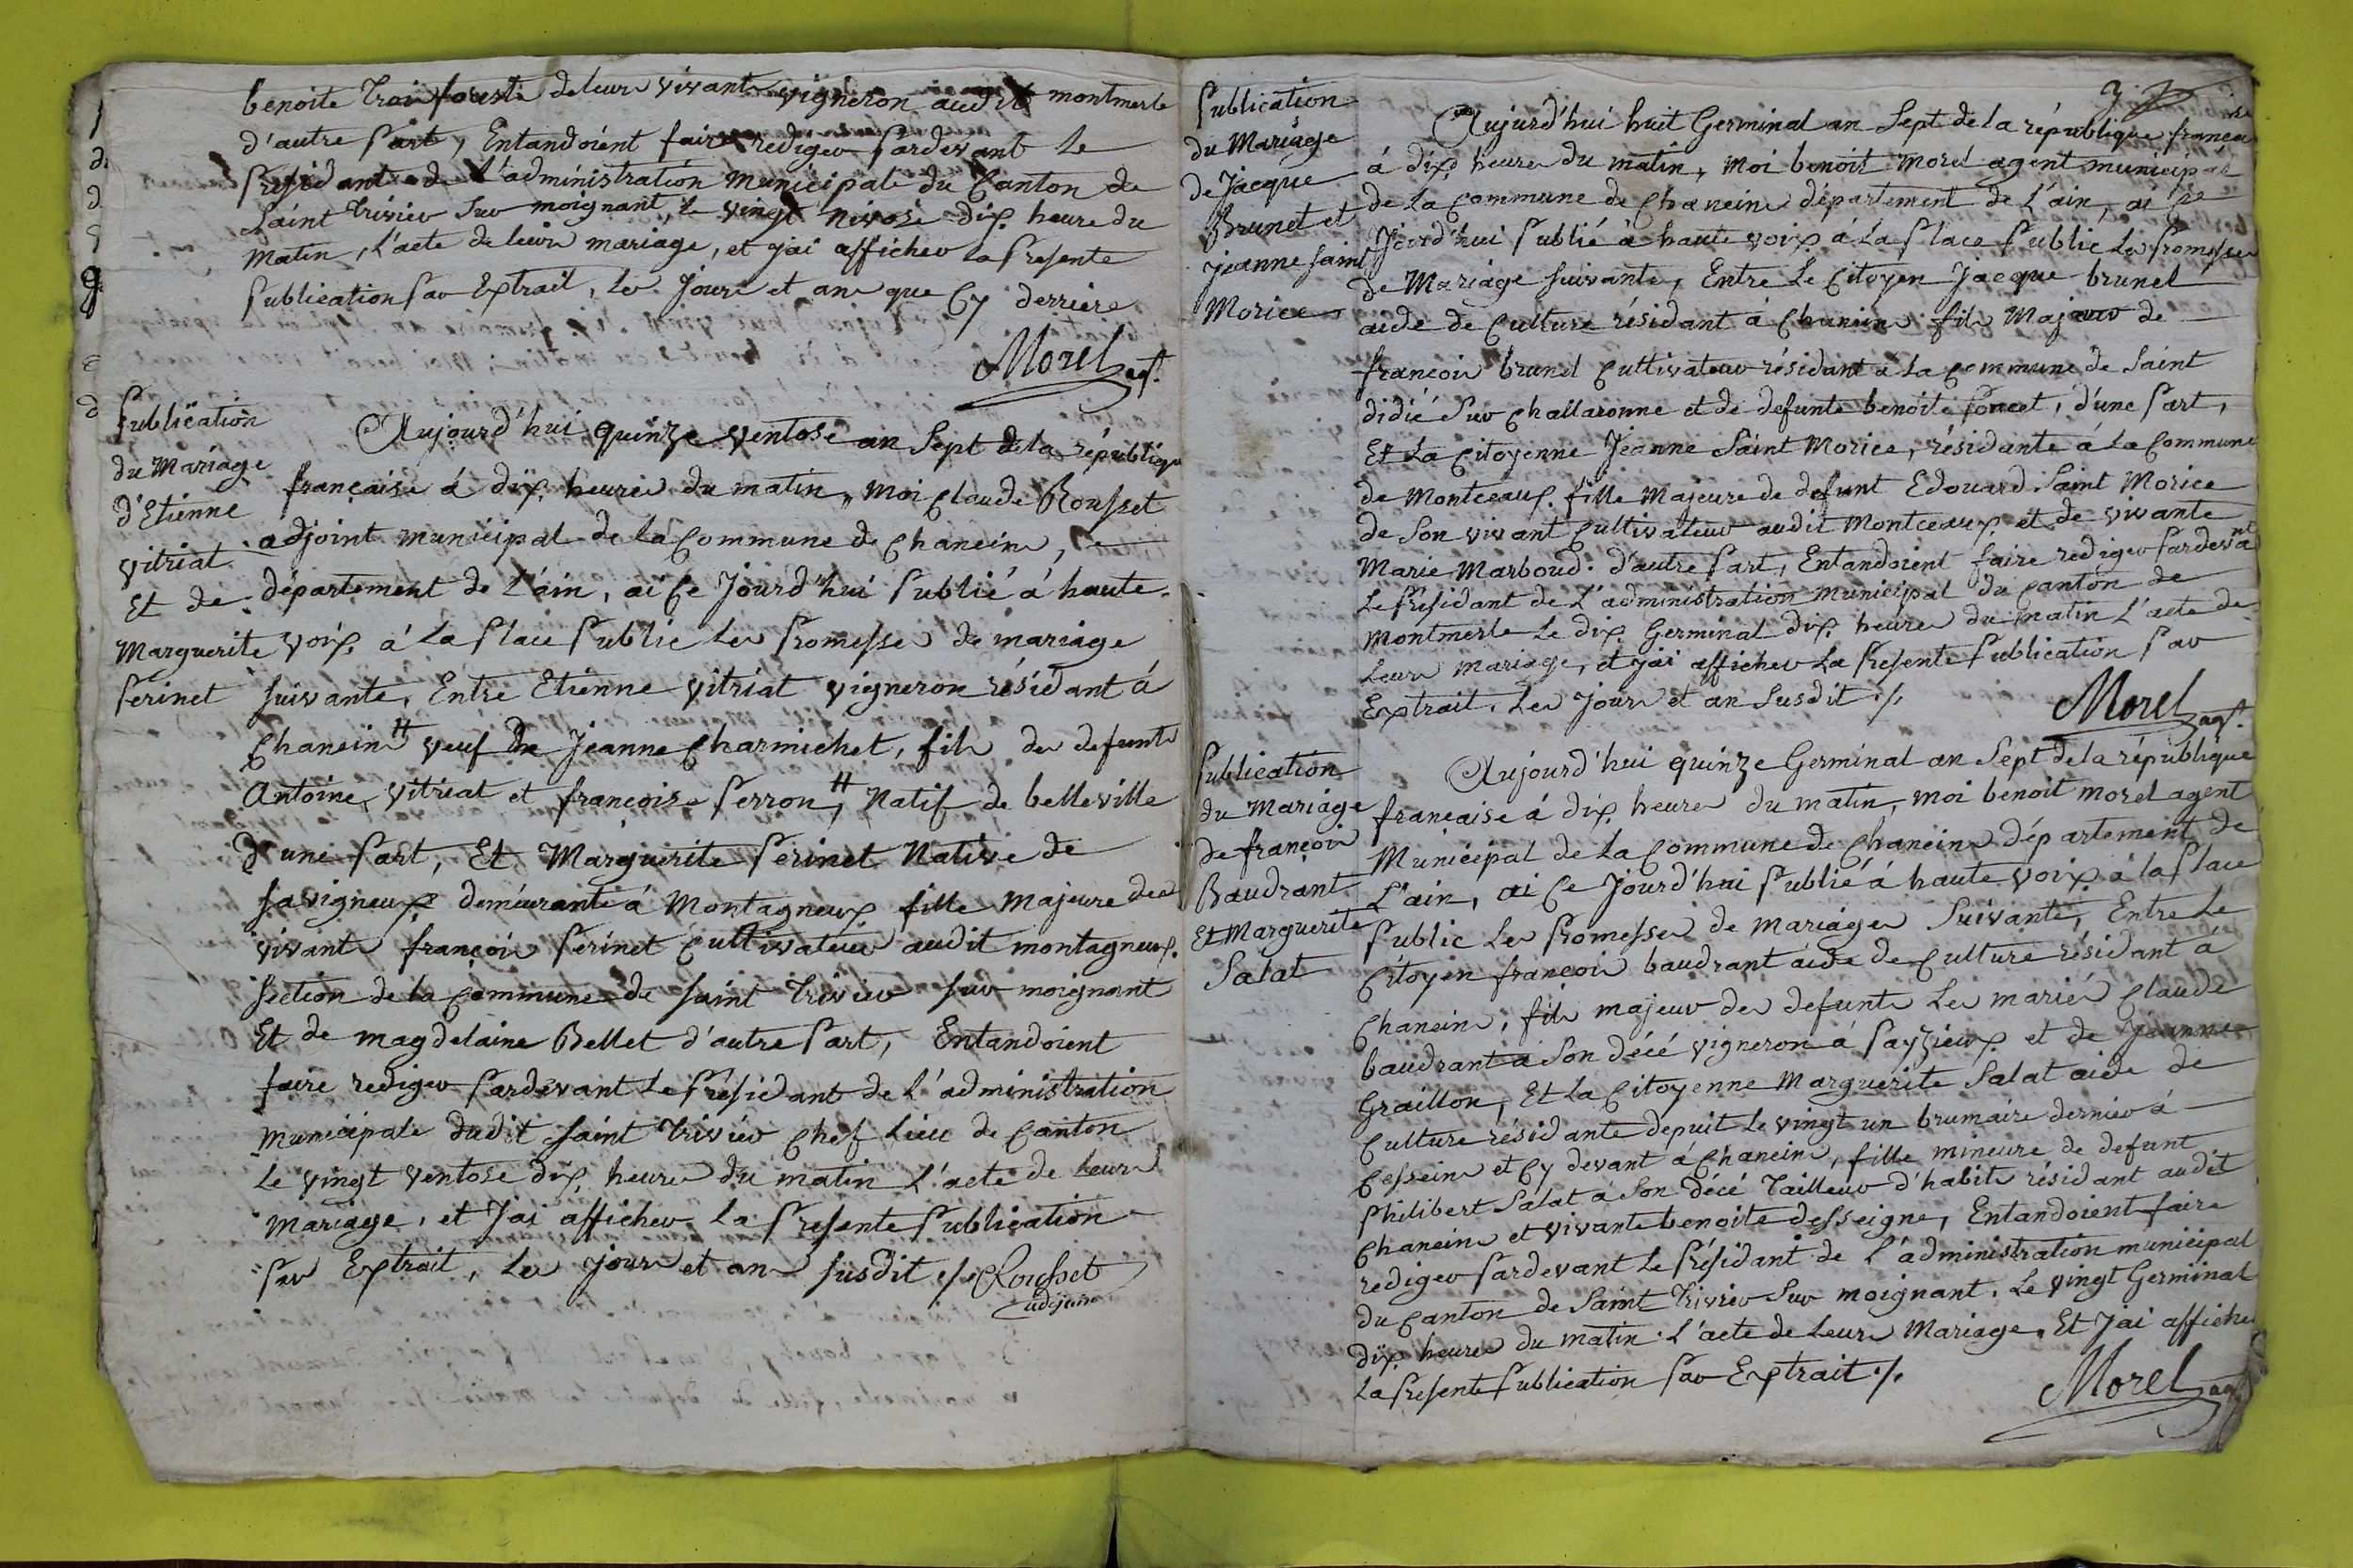 benoite Traisfourste de leurs vivants vigneron audit montmerle
d'autre part, Entandoient faire rediger pardevant le
président de l'administration municipale du Canton de
Saint Trivier sur moignant, le vingt Nivose dix heure du
matin, l'acte de leurs mariage, et j'ai afficher la presente
publication par Extrait, les Jours et ans que Cy derrière
Morel agt.
Publication
du Mariage
d'Etienne
vitriat
Et de
Marguerite
perinet
Aujourd'hui quinze ventose an Sept de la républiqu
française à dix heures du matin, moi Claude Rousset
adjoint municipal de la Commune de Chaneins,
département de L'ain, ai Ce Jourd'hui publié à haute
voix à La place public les promesses de mariage
suivante, Entre Etienne vitriat vigneron résidant à
Chaneins # veuf de Jeanne Charmichet, fils des defunts
Antoine vitriat et françoise perron, # Natif de belleville
d'une part, Et Marguerite perinet Native de
savigneux demeurante à Montagneux fille majeure des
vivants françois perinet Cultivateur audit montagneux
section de la Commune de saint Trivier sur moignant
Et de magdelaine Bellet d'autre part, Entandoient
faire rediger pardevant le présidant de l'administration
municipale dudit saint Trivier Chef lieu de Canton
le vingt ventose dix heures du matin l'acte de leurs
mariage, et J'ai afficher la presente publication
par Extrait, les jours et ans susdit ./. CRousset
adjoint
3
Publication
du Mariage
de Jacque
Brunet et
jeanne saint
Morice
Aujurd'hui huit Germinal an Sept de la république française
à dix heures du matin, moi benoit morel agent municipal
de la Commune de Chaneins département de L'ain, ai Ce
Jourd'hui publié à haute voix à La place public les promesses
de Mariage suivante, Entre le Citoyen Jacque brunet
aide de Culture résidant à Chaneins fils Majeur de
françois brunet Cultivateur résidant à la Commune de Saint
didié sur Challaronne et de defunte benoite poncet, d'une part,
Et La Citoyenne Jeanne Saint Morice, résidante à La Commune
de Montceaux fille Majeure de defunt Edouard Saint Morice
de Son vivant Cultivateur audit Montceaux et de vivante
Marie Marboud. d'autre part, Entandoient faire rediger pardevant
le présidant de l'administration municipal du canton de
Montmerle le dix Germinal dix heures du matin l'acte de
leurs mariage, et j'ai afficher la presente publication par
Extrait. les jours et an susdit ./.
Morel agt.
Publication
du Mariage
de françois
Baudrant
Et Marguerite
Salat
Aujourd'hui quinze Germinal an Sept de la république
française à dix heures du matin, moi benoit morel agent
Municipal de la Commune de Chaneins département de
L'ain, ai Ce Jourd'hui publié à haute voix à la place
public les promesses de mariages suivante, Entre le
Citoyen françois baudrant aide de Culture résidant à
Chaneins, fils majeur des defunts les mariés Claude
baudrant à Son décé vigneron à payzieux et de Jeanne
Graillon, Et La Citoyenne Marguerite Salat aide de
Culture résidante depuit le vingt un brumaire dernier à
Cesseins et Cy devant à Chaneins, fille mineure de defunt
Philibert Salat à Son décé Tailleur d'habits résidant audit
Chaneins et vivante benoite desseigne, Entandoient faire
rediger pardevant le présidant de l'administration municipal
du Canton de Saint Trivier sur moignant. le vingt Germinal
dix heures du matin. l'acte de leurs Mariage, Et j'ai affiche
la presente publication par Extrait ./.
Morel agt